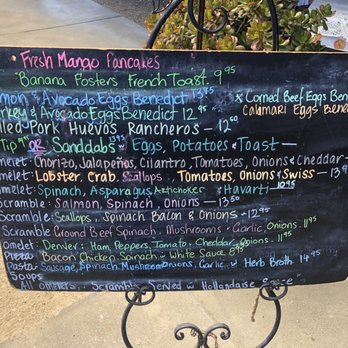 Fresh Mango Pancakes
Banana Fosters French Toast 9.95
mon & Avocado Eggs Benedict 13.95
x Corned Beef Eggs Ben
rkey & Avocado Eggs Benedict 12.95
Calamari Eggs Bene
led Pork Huevos Rancheros — 12.50
Tip OR Sanddabs w/ Eggs, Potatoes & Toast —
melet: Chorizo, Jalapeños, Cilantro, Tomatoes, Onions & Cheddar -
melet: Lobster, Crab, Scallops, Tomatoes, Onions & Swiss —
melet: Spinach, Asparagus, Artichoke & Havarti — 10.95
Scramble: Salmon, Spinach, Onions — 13.50
Scramble: Scallops, Spinach Bacon & Onions — 12.95
Scramble Ground Beef Spinach Mushrooms Garlic Onions 11.95
Omelet: Denver: Ham, Peppers, Tomato, Cheddar, Onions 11.95
Pizza: Bacon Chicken Spinach w/ White Sauce 8.95
Pasta: Sausage, Spinach, Mushroom Onions, Garlic w/ Herb Broth 14.95
Soups
All omelets Scrambles Served w/ Hollandaise